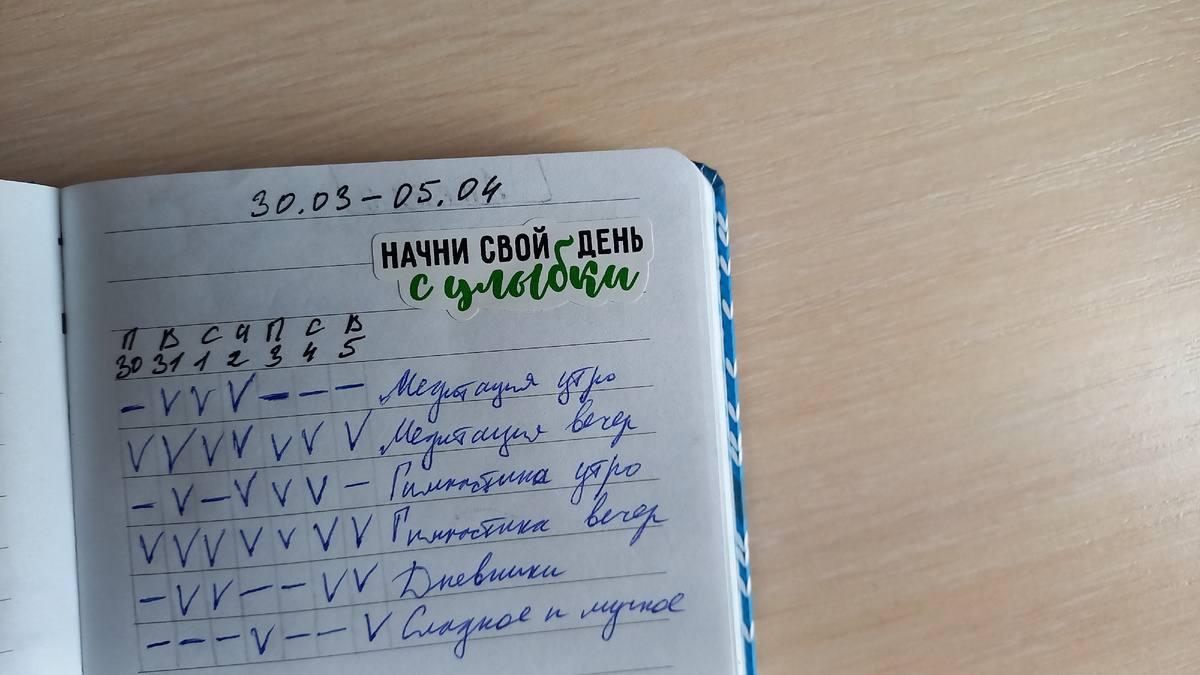 30.03 – 05.04
НАЧНИ СВОЙ ДЕНЬ
с улыбки
П В С Ч П С В
30 31 1 2 3 4 5
– V V V – – – Медитация утро
V V V V V V V Медитация вечер
– V – V V V – Гимнастика утро
V V V V V V V Гимнастика вечер
– V V – – V V Дневники
– – – V – – V Сладкое и мучное